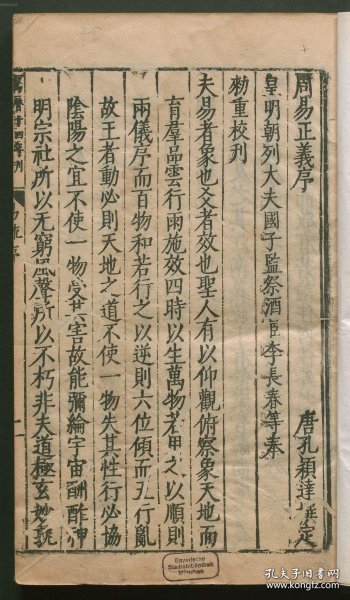 周易正義序
唐孔穎達
皇明朝列大夫國子監祭酒臣李長春等奉
勑重校刊
夫易者象也爻者效也聖人有以仰觀俯察象天地而
育羣品雲行雨施效四時以生萬物若用之以順則
兩儀序而百物和若行之以逆則六位傾而五行亂
故王者動必則天地之道不使一物失其性行必協
陰陽之宜不使一物受其害故能彌綸宇宙酬酢神
明宗社所以无窮風聲所以不朽非夫道極玄妙孰
Bayerische
Staatsbibliothek
München
孔夫子旧书网